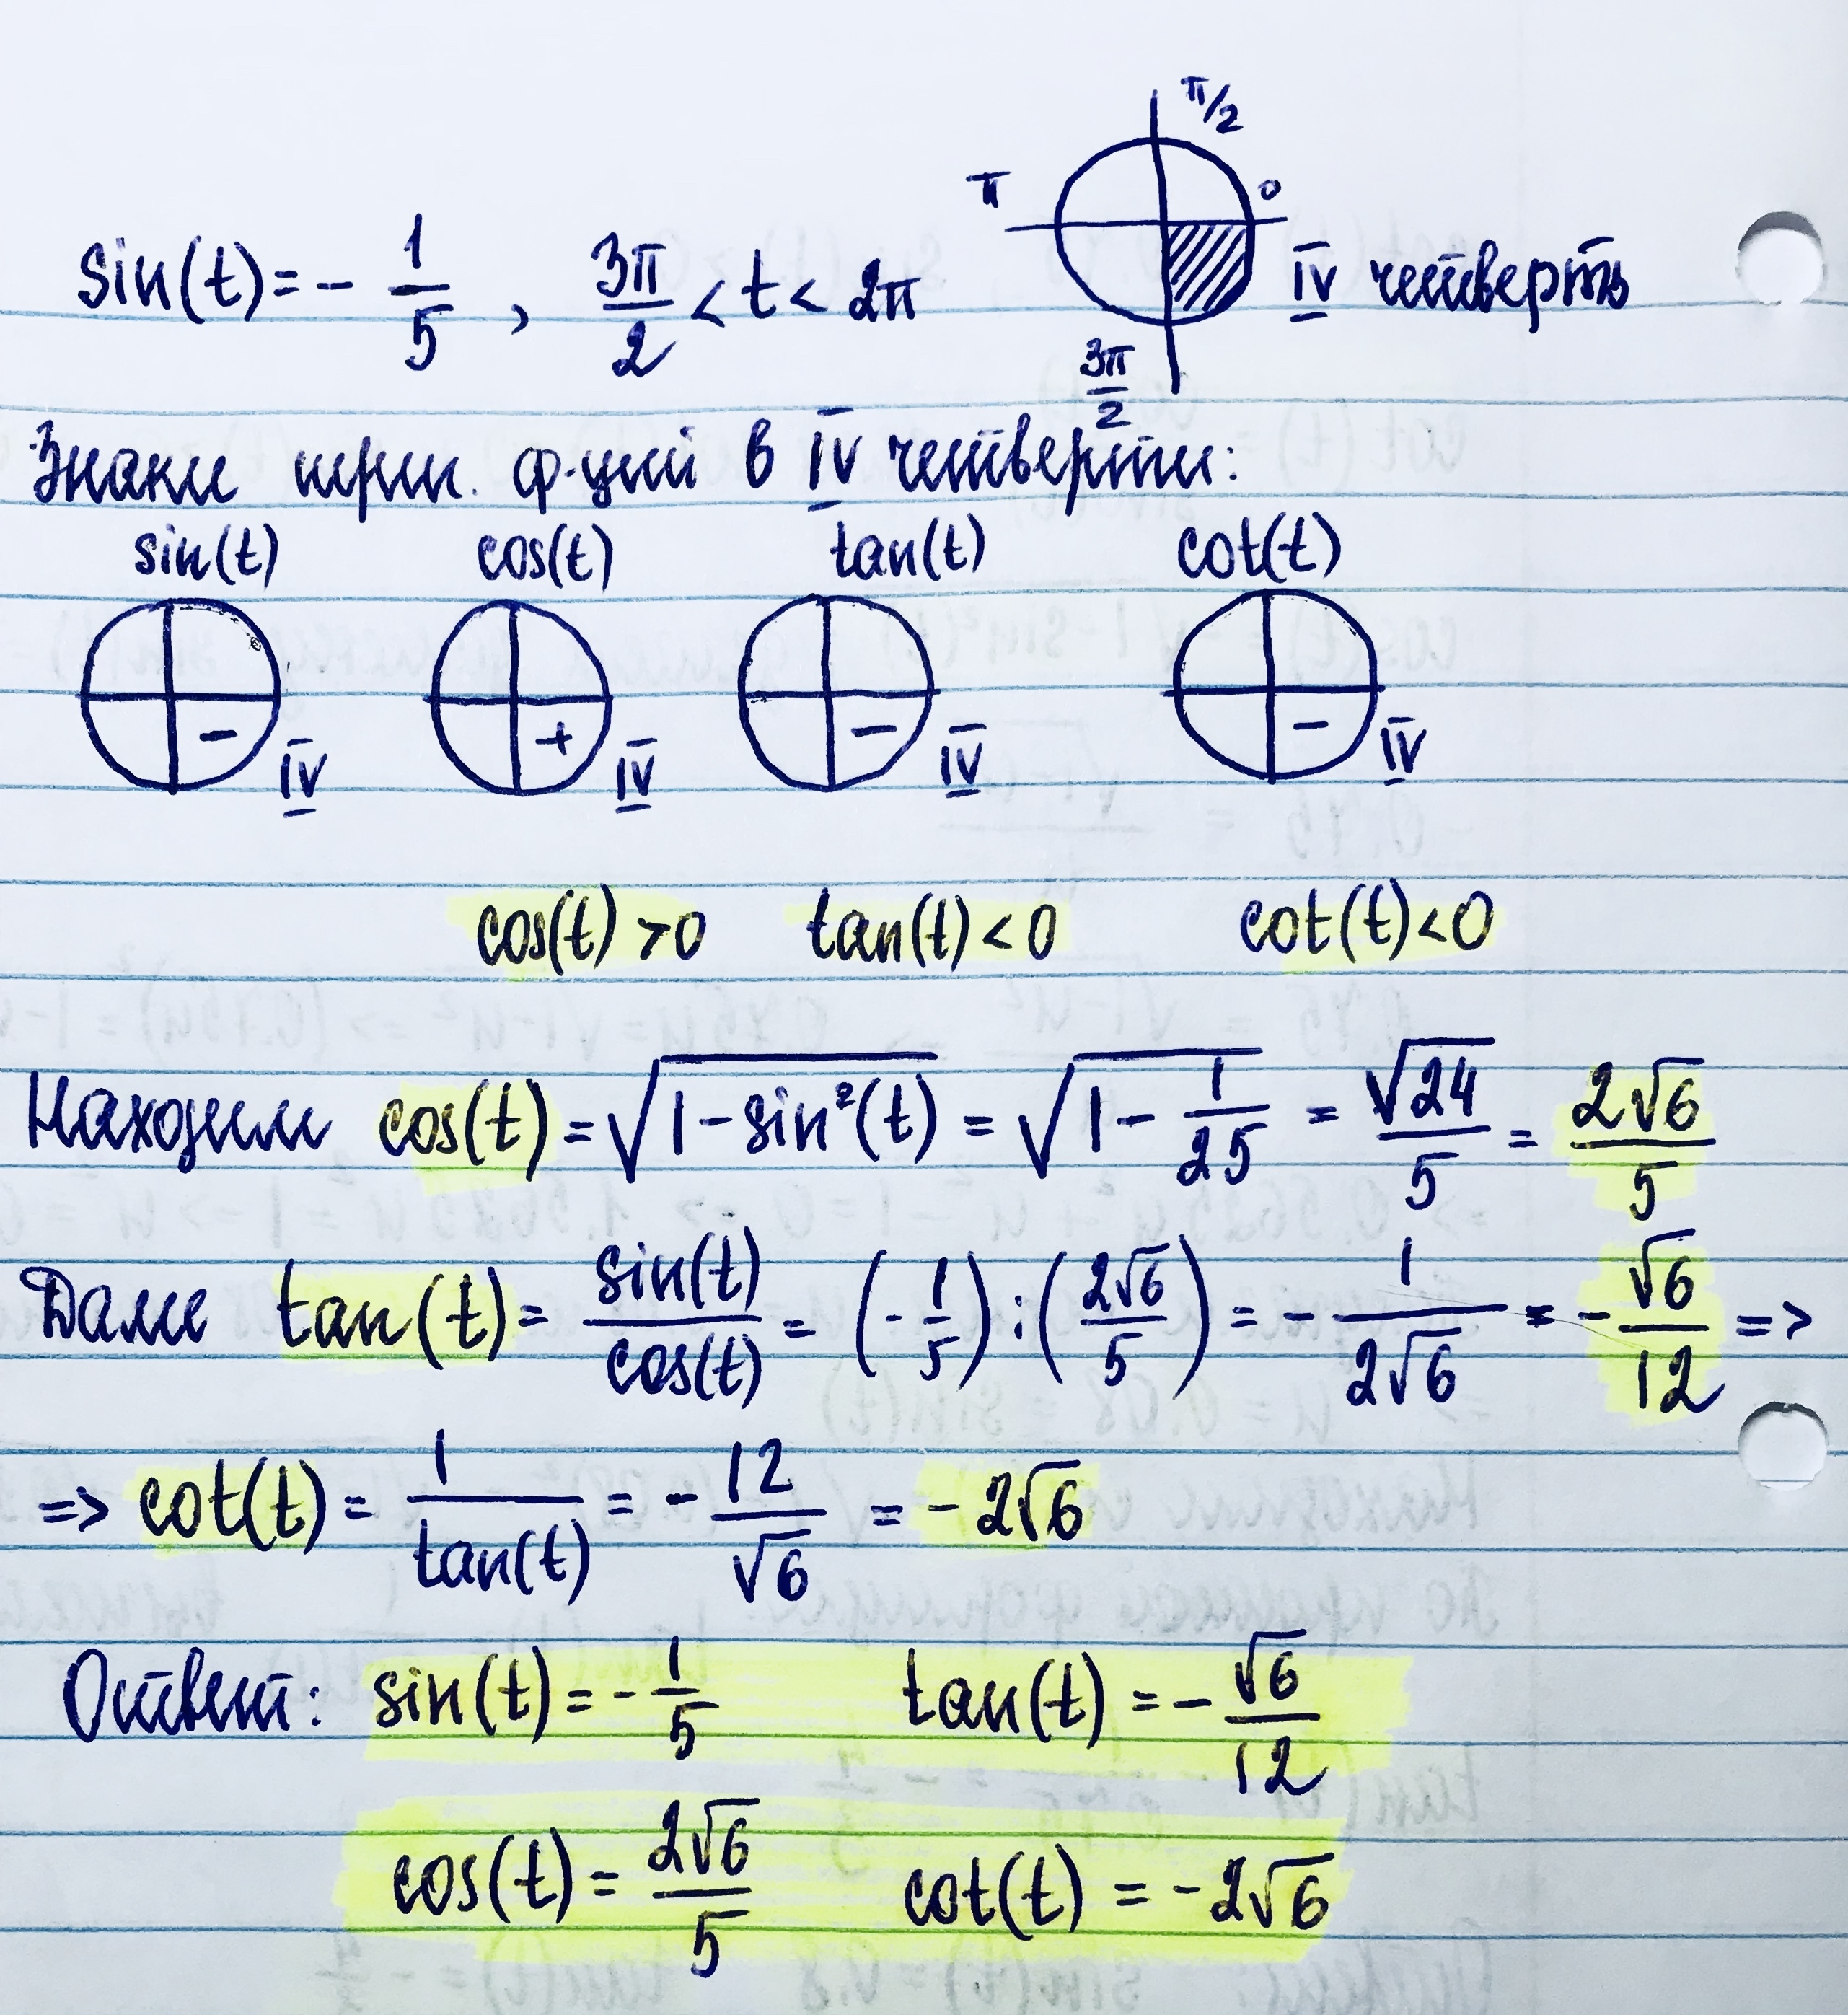 π/2
π 0
sin(t) = - 1/5 , 3π/2 < t < 2π IV четверть
3π/2
Знаки триг. ф-ций в IV четверти:
sin(t) cos(t) tan(t) cot(t)
- IV + IV - IV - IV
cos(t) > 0 tan(t) < 0 cot(t) < 0
Находим cos(t) = √(1 - sin²(t)) = √(1 - 1/25) = √24/5 = 2√6/5
Далее tan(t) = sin(t)/cos(t) = (- 1/5) : (2√6/5) = - 1/(2√6) = - √6/12 =>
=> cot(t) = 1/tan(t) = - 12/√6 = - 2√6
Ответ: sin(t) = - 1/5 tan(t) = - √6/12
cos(t) = 2√6/5 cot(t) = - 2√6